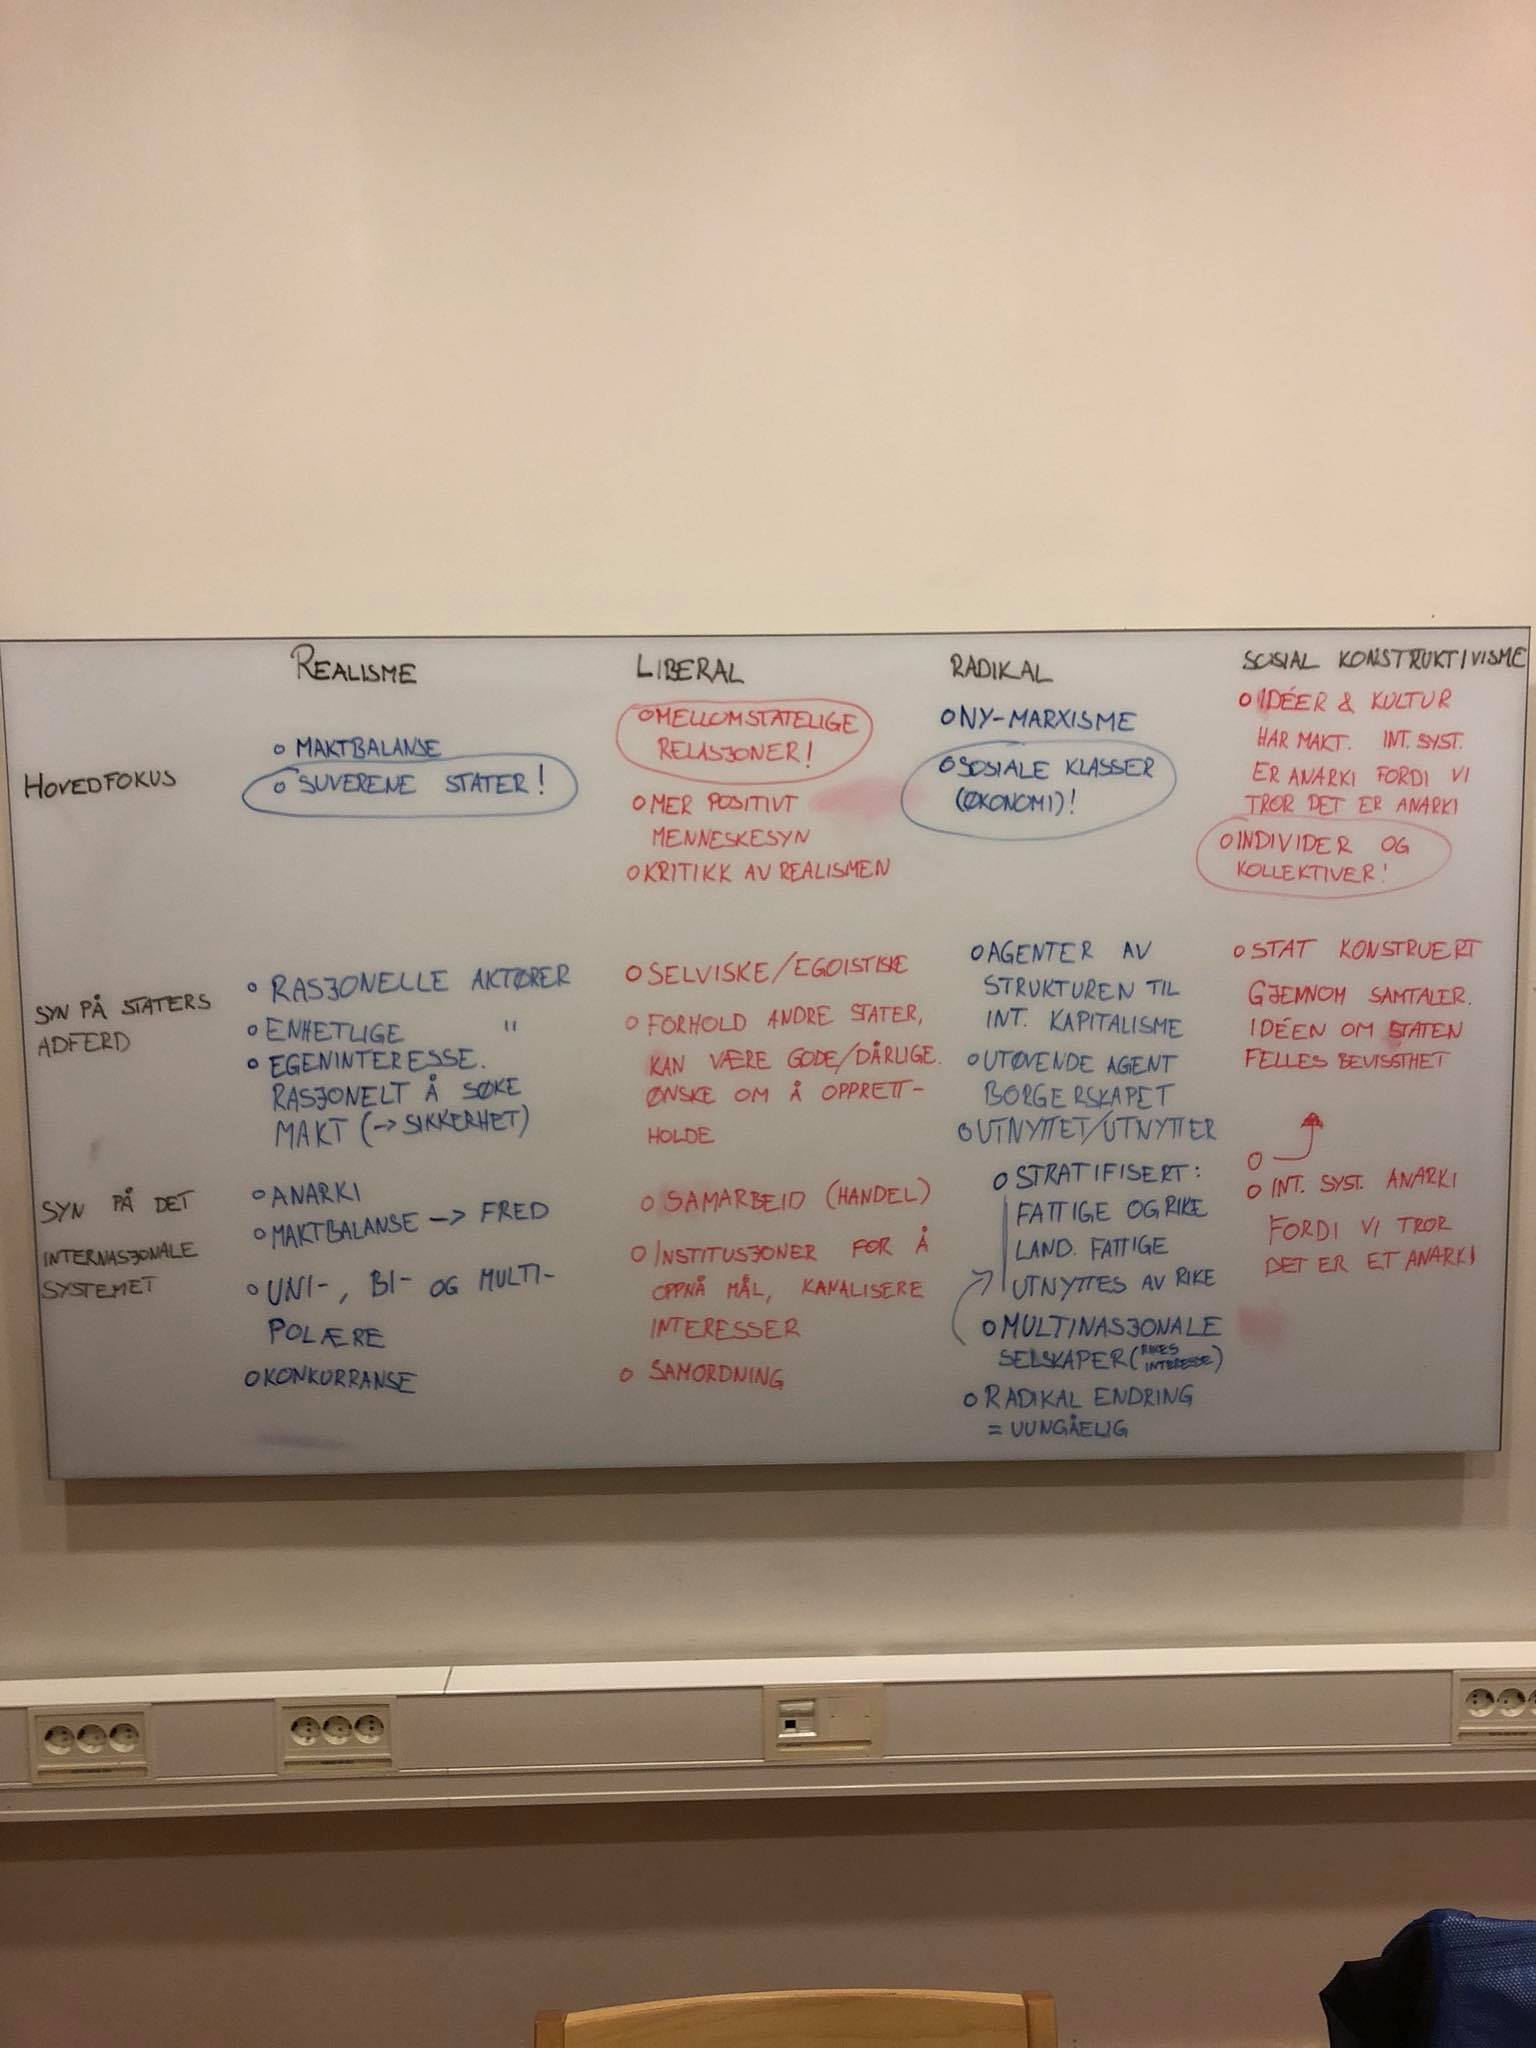 REALISME
LIBERAL
RADIKAL
SOSIAL KONSTRUKTIVISME
HOVEDFOKUS
o MAKTBALANSE
o SUVERENE STATER!
o MELLOMSTATELIGE
RELASJONER!
o MER POSITIVT
MENNESKESYN
o KRITIKK AV REALISMEN
o NY-MARXISME
o SOSIALE KLASSER
(ØKONOMI)!
o IDÉER & KULTUR
HAR MAKT. INT. SYST.
ER ANARKI FORDI VI
TROR DET ER ANARKI
o INDIVIDER OG
KOLLEKTIVER!
SYN PÅ STATERS
ADFERD
o RASJONELLE AKTØRER
o ENHETLIGE "
o EGENINTERESSE.
RASJONELT Å SØKE
MAKT (→ SIKKERHET)
o SELVISKE/EGOISTISKE
o FORHOLD ANDRE STATER,
KAN VÆRE GODE/DÅRLIGE.
ØNSKE OM Å OPPRETT-
HOLDE
o AGENTER AV
STRUKTUREN TIL
INT. KAPITALISME
o UTØVENDE AGENT
BORGERSKAPET
o UTNYTTET/UTNYTTER
o STAT KONSTRUERT
GJENNOM SAMTALER.
IDÉEN OM STATEN
FELLES BEVISSTHET
SYN PÅ DET
INTERNASJONALE
SYSTEMET
o ANARKI
o MAKTBALANSE → FRED
o UNI-, BI- OG MULTI-
POLÆRE
o KONKURRANSE
o SAMARBEID (HANDEL)
o INSTITUSJONER FOR Å
OPPNÅ MÅL, KANALISERE
INTERESSER
o SAMORDNING
o STRATIFISERT:
FATTIGE OG RIKE
LAND. FATTIGE
UTNYTTES AV RIKE
o MULTINASJONALE
SELSKAPER (RIKES
INTERESSE)
o RADIKAL ENDRING
= UUNGÅELIG
o
o INT. SYST. ANARKI
FORDI VI TROR
DET ER ET ANARKI